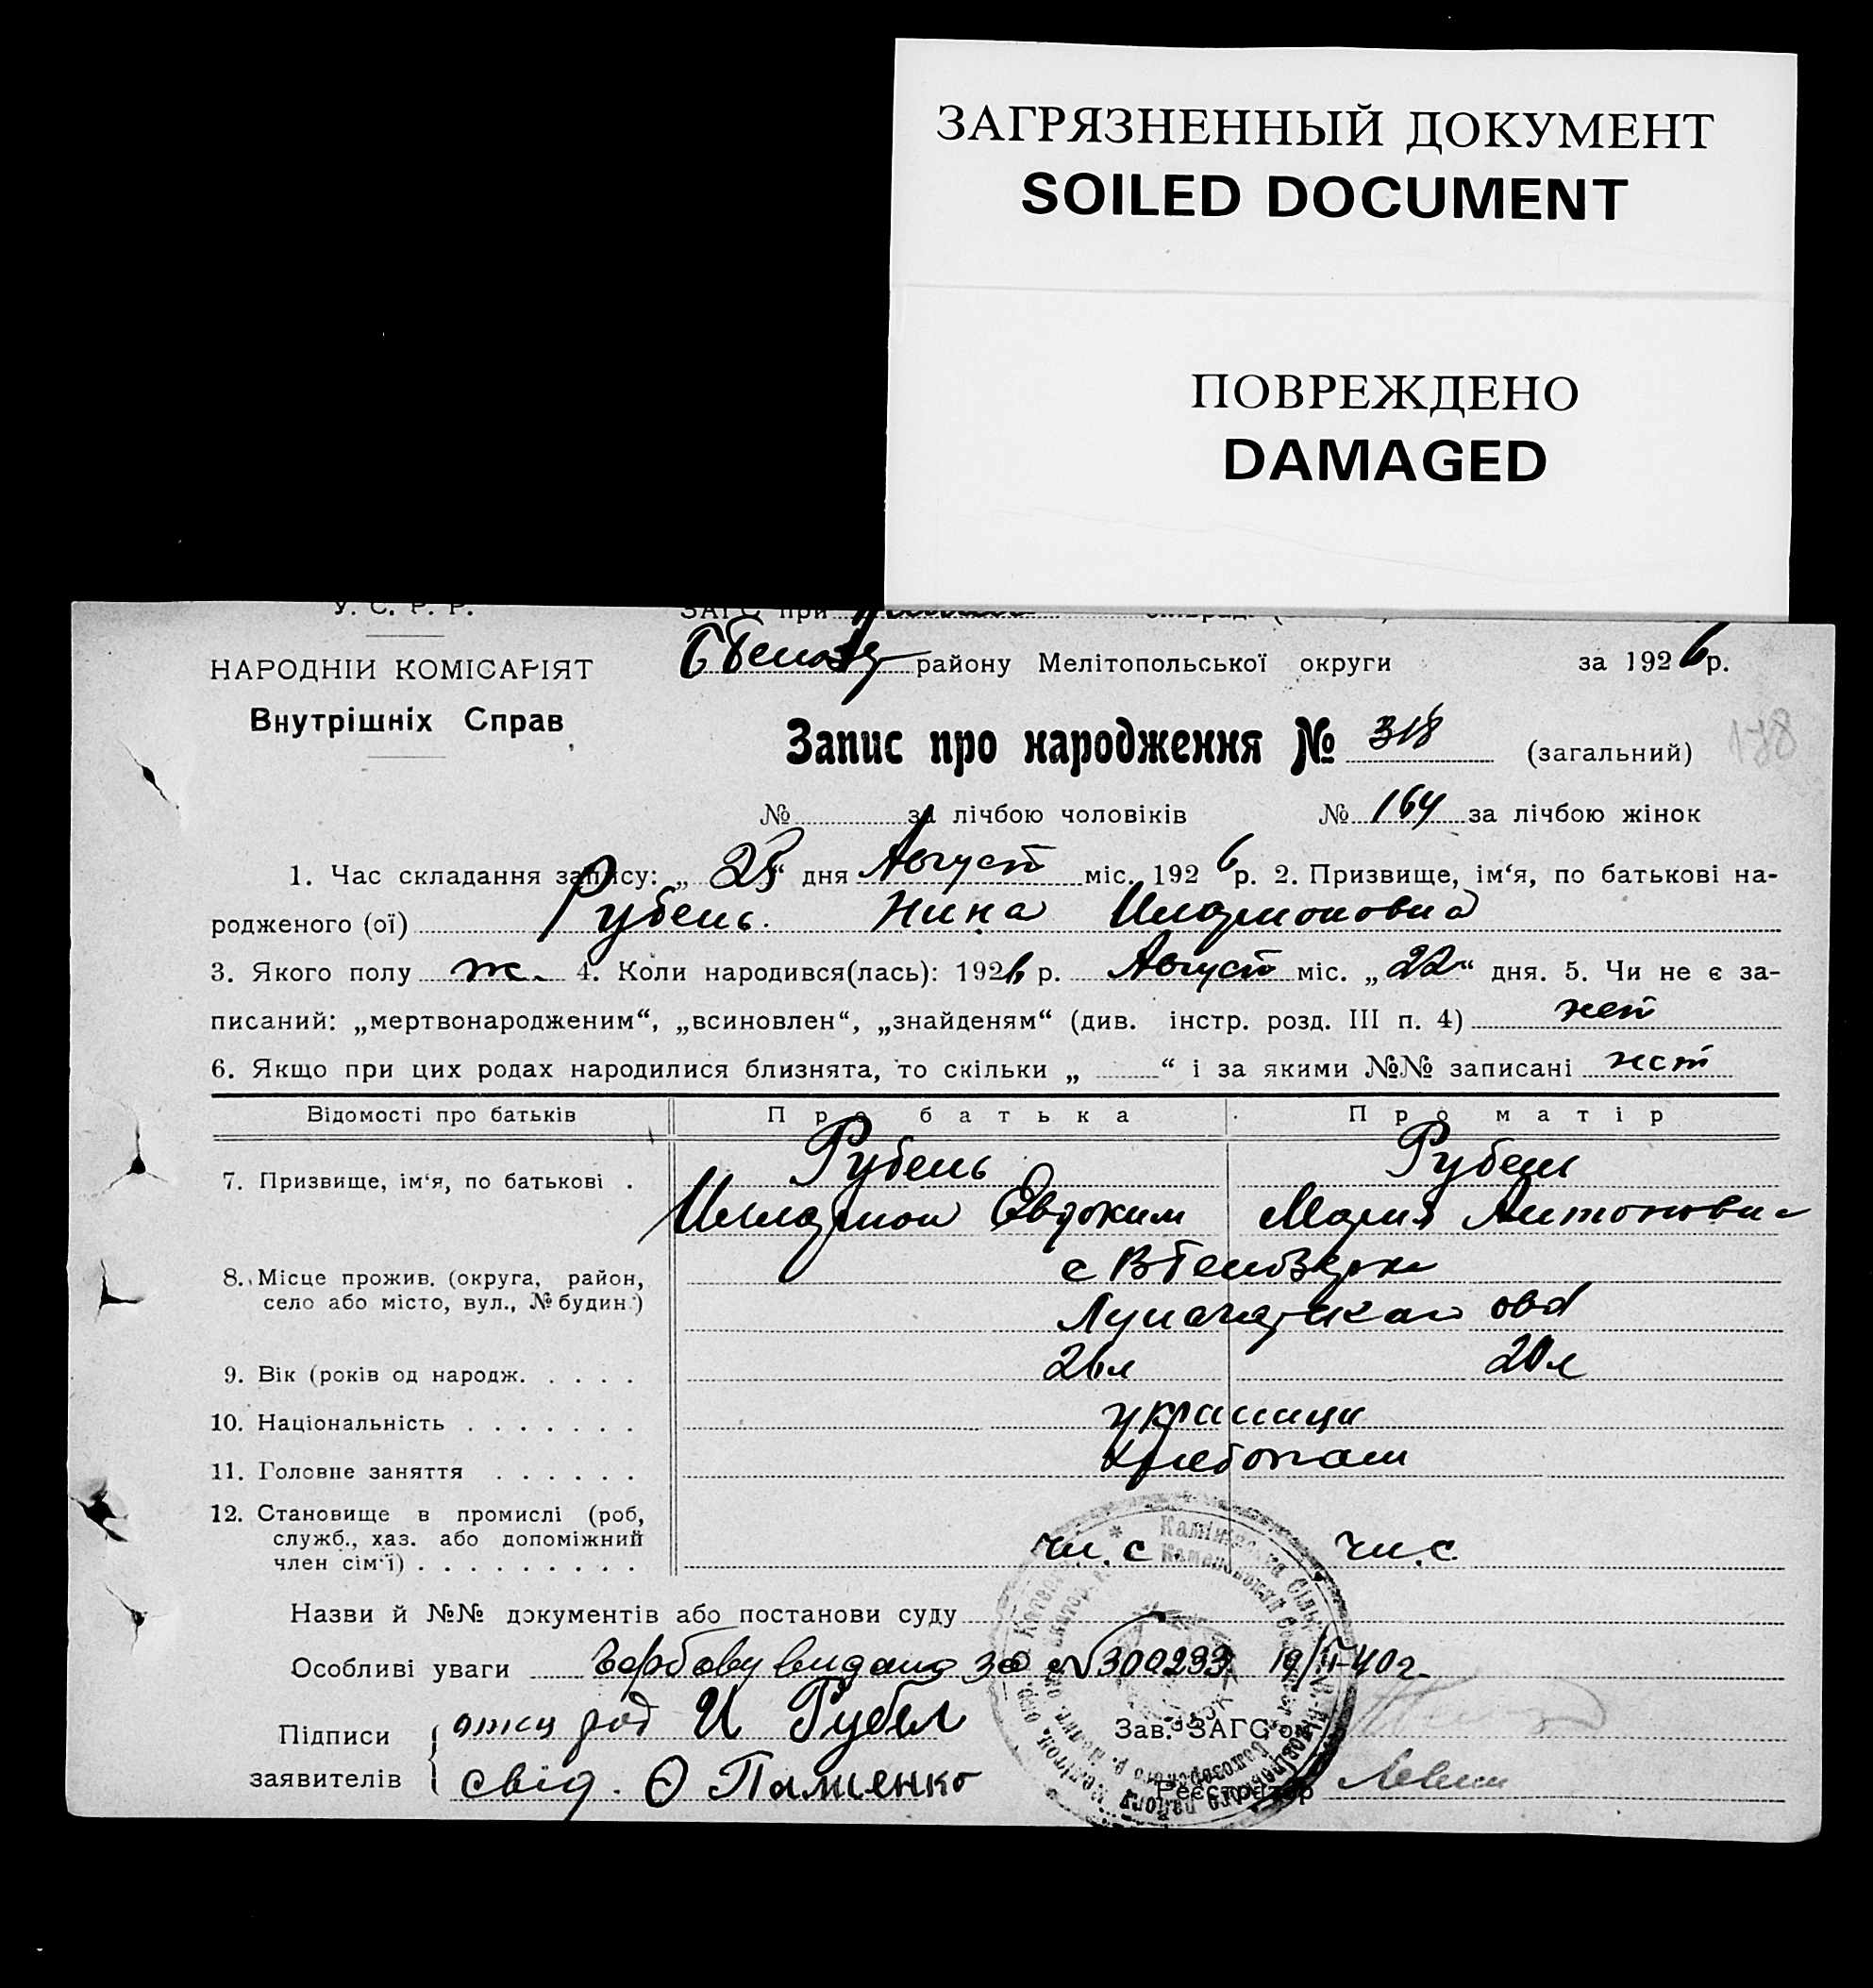 ЗАГРЯЗНЕННЫЙ ДОКУМЕНТ
SOILED DOCUMENT
ПОВРЕЖДЕНО
DAMAGED
У. С. Р. Р.
ЗАГС при
НАРОДНІЙ КОМІСАРІЯТ
району Мелітопольської округи за 1926 р.
Внутрішніх Справ
Запис про народження № 318 (загальний)
178
№ за лічбою чоловіків № 164 за лічбою жінок
1. Час складання запису: „ 28 “ дня Август міс. 1926 р. 2. Призвище, ім‘я, по батькові на-
родженого (ої) Рубень. Нина Иларионовна
3. Якого полу ж. 4. Коли народився(лась): 1926 р. Август міс. „ 22 “ дня. 5. Чи не є за-
писаний: „мертвонародженим“, „всиновлен“, „знайденям“ (див. інстр. розд. III п. 4) нет
6. Якщо при цих родах народилися близнята, то скільки „ “ і за якими №№ записані нет
Відомості про батьків Про батька Про матір
Рубень Рубень
7. Призвище, ім‘я, по батькові .
Иларион Евдоким Мария Антоновна
8. Місце прожив. (округа, район,
село або місто, вул., № будин.)
9. Вік (років од народж. . . . . 26 л 20 л
10. Національність . . . . . . . украинцы
11. Головне заняття . . . . . . хлебопаш
12. Становище в промислі (роб,
служб., хаз. або допоміжний
член сім‘ї) . . . . . . . . . чл. с. чл. с.
Назви й №№ документів або постанови суду
Особливі уваги видано за № 300233 40 г.
Підписи отец И Рубел Зав. ЗАГС‘ом
заявителів свід. Ф Пащенко Реєстратор